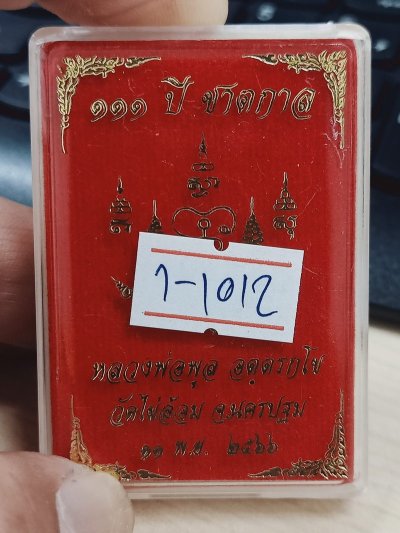 ๑๑๑ ปี ชาตกาล
1-1012
หลวงพ่อพูล อตฺตรกฺโข
วัดไผ่ล้อม จ.นครปฐม
๑๑ พ.ย. ๒๕๖๖